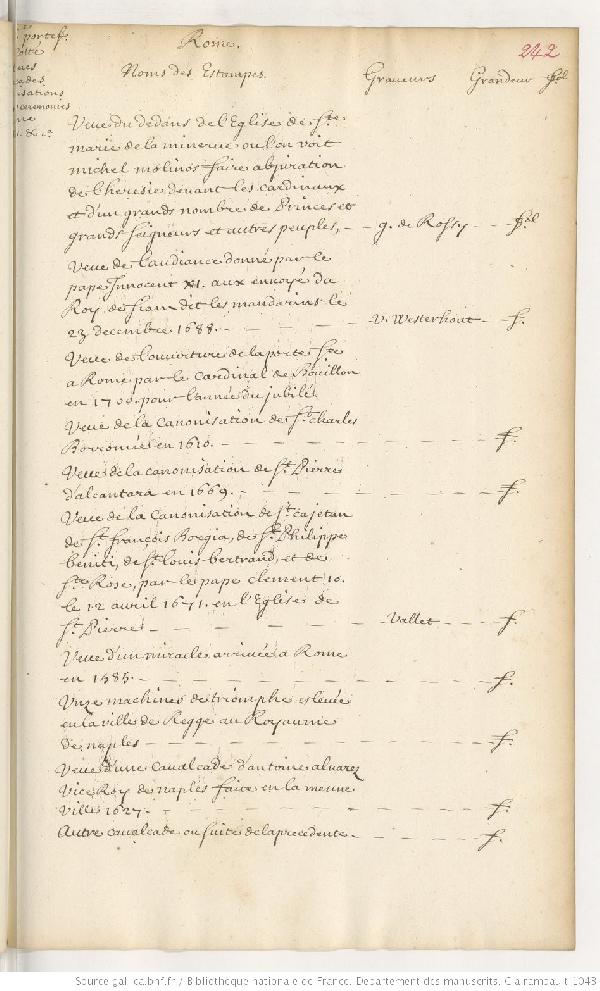 portef.
Rome.
242
Noms des Estampes. Graveurs Grandeur
Veue du dedans de l'Eglise de Ste
marie de la minerve ou l'on voit
michel molinos faire abjuration
de l'heresie devant les cardinaux
et d'un grands nombre de Princes et
grands seigneurs et autres peuples, - - g. de Rossy - - - fol
Veue de l'audiance donné par le
pape Innocent XI. aux envoyé du
Roy de siam dit les mandarins le
23 decembre 1688. - - - - - v. Westerhout - f.
Veue de l'ouverture de la porte Ste
a Rome par le Cardinal de Bouillon
en 1700. pour l'année du jubilé.
Veue de la Canonisation de St. charles
Borromée en 1610. - - - - - - - f.
Veue de la canonisation de St. Pierre
d'alcantara en 1669. - - - - - - - f.
Veue de la Canonisation de St. Cajetan
de St. françois Borgia, de St. Philippe
beniti, de St. louis bertrand, et de
Ste Rose, par le pape clement 10.
le 12 avril 1671. en l'Eglise de
St. Pierre - - - - - - Vallet - - f.
Veue d'un miracle arrivée a Rome
en 1585. - - - - - - - - f.
Unze machines de triomphe eslevée
en la ville de Regge au Royaume
de naples - - - - - - - - f.
Veue d'une Cavalcade d'antoine alvarez
Vice Roy de naples faite en la meme
Ville 1627. - - - - - - - - f.
Autre cavalcade ou suite de la precedente. - - - - f.
Source gallica.bnf.fr / Bibliothèque nationale de France. Département des manuscrits. Clairambault 1043